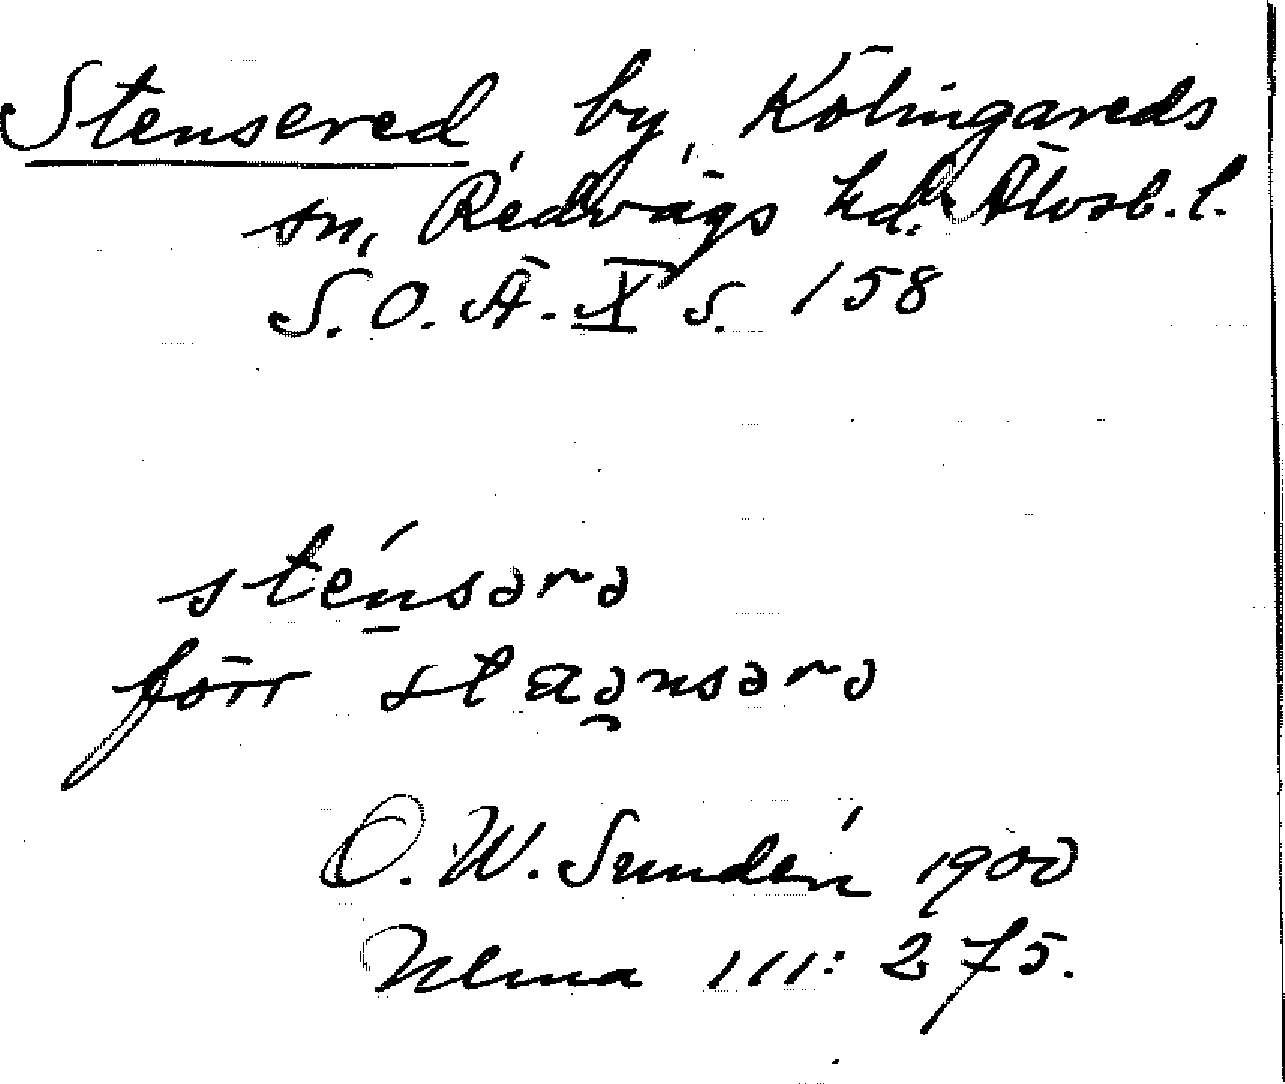 Stensered by, Kölingareds
sn, Redvägs hd. Älvsb. l.
S. O. Ä. X s. 158
sténsərə
förr staə̯nsərə
O. W. Sundén 1900
Ulma 111: 275.